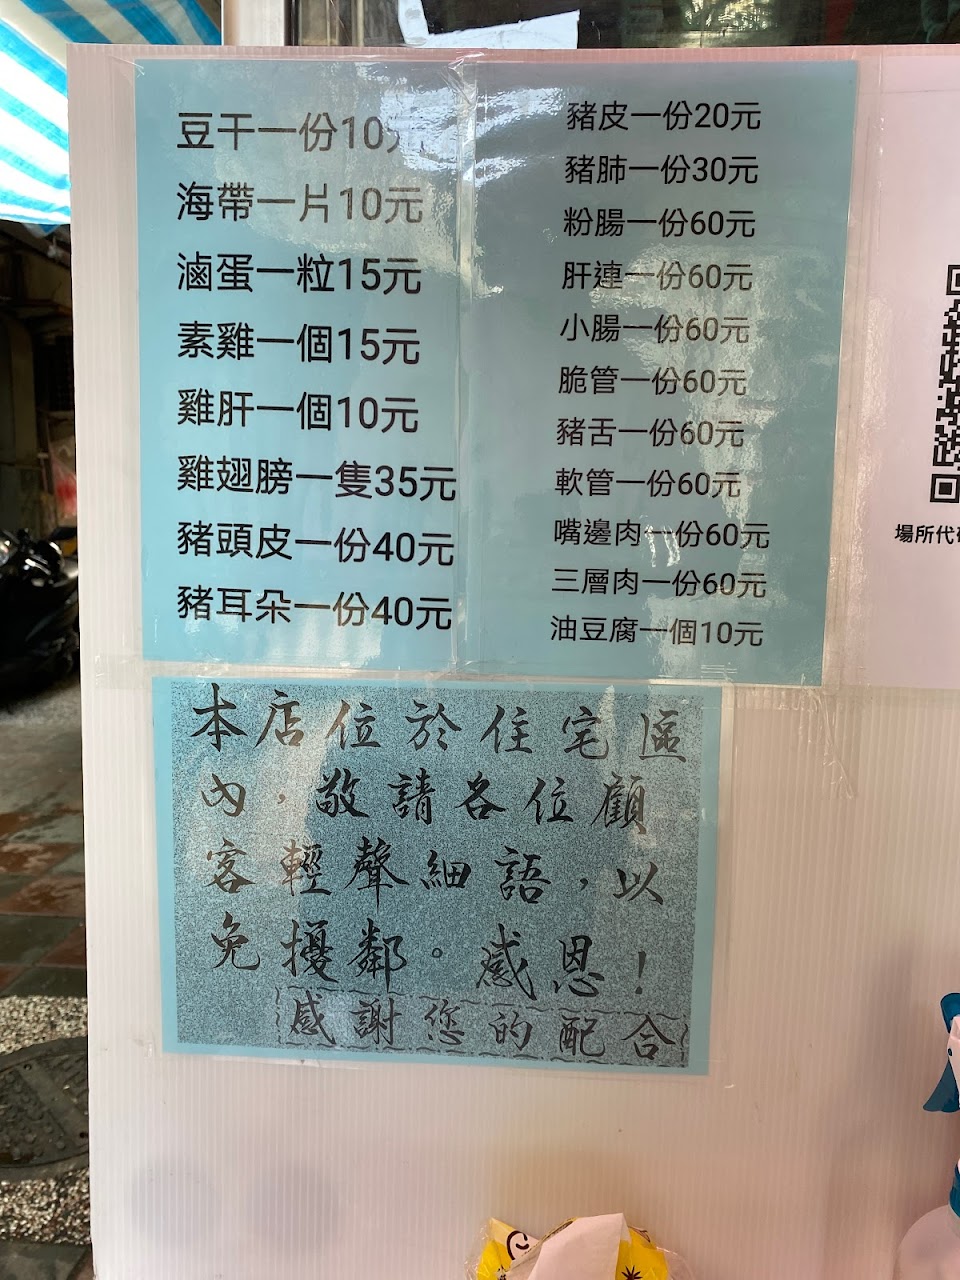 豆干一份10元
海帶一片10元
滷蛋一粒15元
素雞一個15元
雞肝一個10元
雞翅膀一隻35元
豬頭皮一份40元
豬耳朵一份40元
豬皮一份20元
豬肺一份30元
粉腸一份60元
肝連一份60元
小腸一份60元
脆管一份60元
豬舌一份60元
軟管一份60元
嘴邊肉一份60元
三層肉一份60元
油豆腐一個10元
本店位於住宅區
內，敬請各位顧
客輕聲細語，以
免擾鄰。感恩！
感謝您的配合
場所代